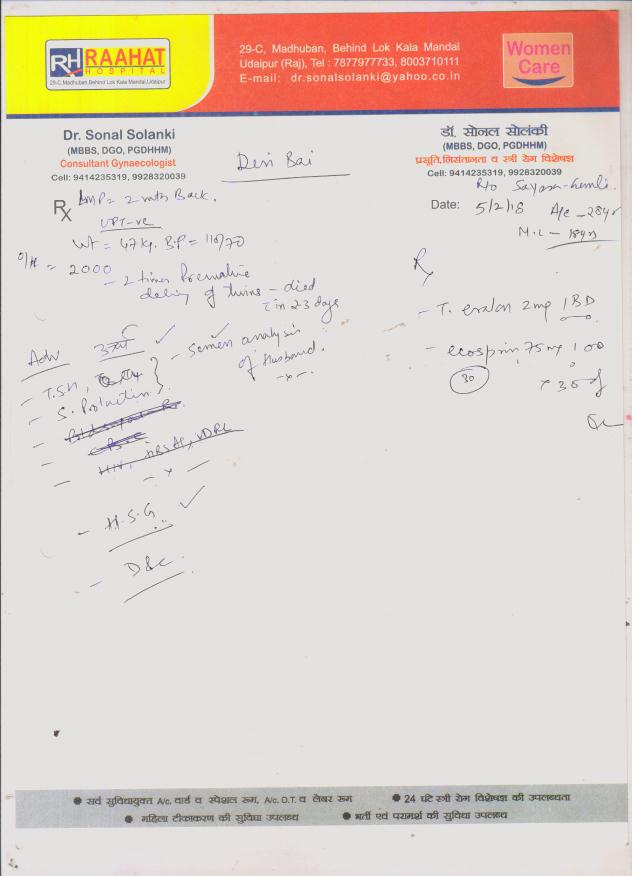 RH RAAHAT
HOSPITAL
29-C, Madhuban, Behind Lok Kala Mandal, Udaipur
29-C, Madhuban, Behind Lok Kala Mandal
Udaipur (Raj), Tel : 7877977733, 8003710111
E-mail: dr.sonalsolanki@yahoo.co.in
Women
Care
Dr. Sonal Solanki
(MBBS, DGO, PGDHHM)
Consultant Gynaecologist
Cell: 9414235319, 9928320039
Devi Bai
डॉ. सोनल सोलंकी
(MBBS, DGO, PGDHHM)
प्रसूति, निसंतानता व स्त्री रोग विशेषज्ञ
Cell: 9414235319, 9928320039
R/o
Date: 5/2/18 A/c - 28yr
M.L - 18yrs
Rx LMP = 2 mths Back.
UPT -ve
Wt = 47 kg. BP = 110/70
O/H = 2000
- 2 times Premative
delivery of twins - died
in 2-3 days
Rx
- T. 2mg 1 BD
- ecosprin 75 mg 1 OD
30
Adv
- T.S.H,
- S. Prolactin
- Semen analysis
of Husband.
- x -
- HIV, HBSAG, VDRL
- x -
- H.S.G
- D&C.
● सर्व सुविधायुक्त A/c. वार्ड व स्पेशल रूम, A/c. O.T. व लेबर रूम ● 24 घंटे स्त्री रोग विशेषज्ञ की उपलब्धता
● महिला टीकाकरण की सुविधा उपलब्ध ● भर्ती एवं परामर्श की सुविधा उपलब्ध